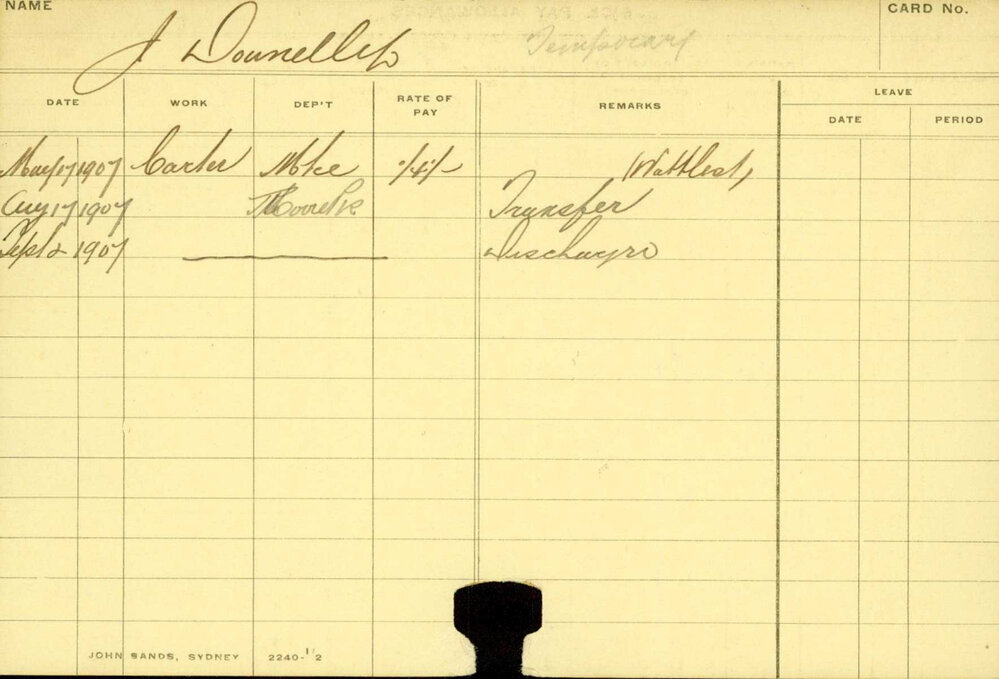 NAME J Donnelly Temporary CARD No.
DATE WORK DEP'T RATE OF PAY REMARKS LEAVE
DATE PERIOD
May 17 1907 Carter (Wattlest)
Aug 17 1907 Moore Pk Transfer
Sept 2 1907 Discharge
JOHN SANDS, SYDNEY 2240-1/2